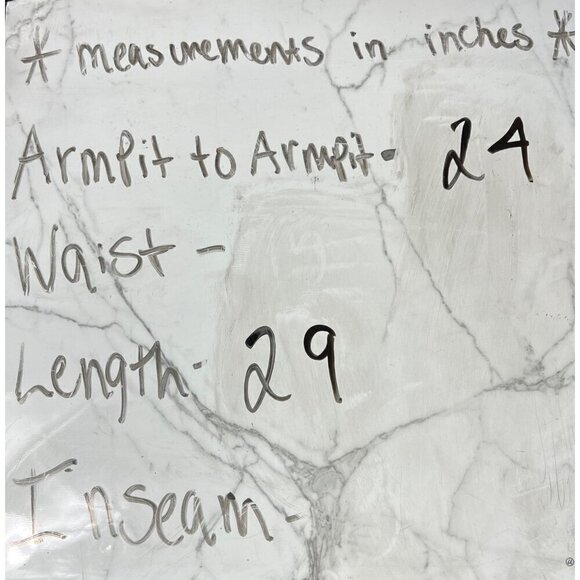 * measurements in inches *
Armpit to Armpit- 24
Waist -
Length- 29
Inseam-